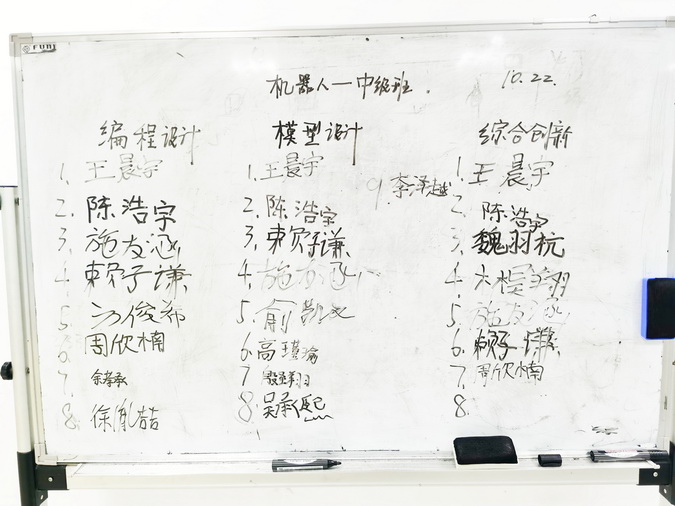 机器人一中级班.
10.22.
编程设计
1. 王晨宇
2. 陈浩宇
3. 施友涵
4. 赖子谦
5. 俊
6. 周欣楠
7.
8. 徐胤喆
模型设计
1. 王晨宇
2. 陈浩宇
3. 赖子谦
4. 施友涵
5. 俞凯文
6. 高瑾瑜
7
8. 吴承熙
9. 李泽越
综合创新
1. 王晨宇
2. 陈浩宇
3. 魏羽杭
4. 翔
5. 施友涵
6. 赖子谦
7. 周欣楠
8.